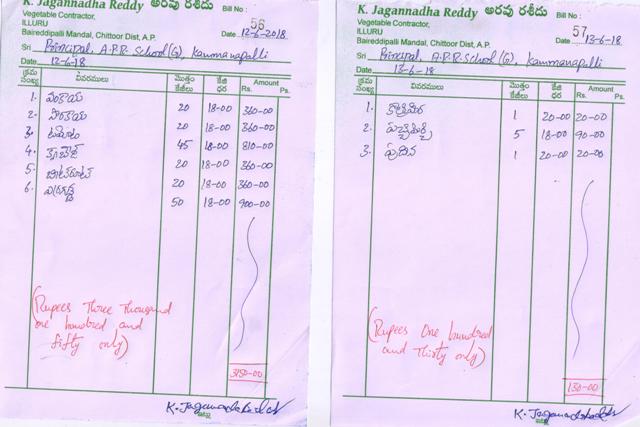 K. Jagannadha Reddy అరవు రశీదు
Bill No : 56
Vegetable Contractor,
ILLURU
Date 12-6-2018
Baireddipalli Mandal, Chittoor Dist, A.P.
Sri Principal, A.P.R. School(G), Kammanapalli
Date 12-6-18
క్రమ సంఖ్య వివరములు మొత్తం కేజీలు కేజి ధర Amount
Rs. Ps.
1. వంకాయ 20 18-00 360-00
2. 20 18-00 360-00
3. టమోటా 45 18-00 810-00
4. క్యాబేజీ 20 18-00 360-00
5. బీట్‌రూట్ 20 18-00 360-00
6. ఎర్రగడ్డ 50 18-00 900-00
(Rupees Three Thousand
one hundred and
fifty only)
3150-00
K. Jagannadha Reddy
K. Jagannadha Reddy అరవు రశీదు
Bill No :
Vegetable Contractor,
57
ILLURU
Date 13-6-18
Baireddipalli Mandal, Chittoor Dist, A.P.
Sri Principal, A.P.R. School (G), Kammanapalli
Date 13-6-18
క్రమ సంఖ్య వివరములు మొత్తం కేజీలు కేజి ధర Amount
Rs. Ps.
1. కొత్తిమీర 1 20-00 20-00
2. పచ్చిమిర్చి 5 18-00 90-00
3. పుదీన 1 20-00 20-00
(Rupees One hundred
and Thirty only)
130-00
K. Jagannadha Reddy